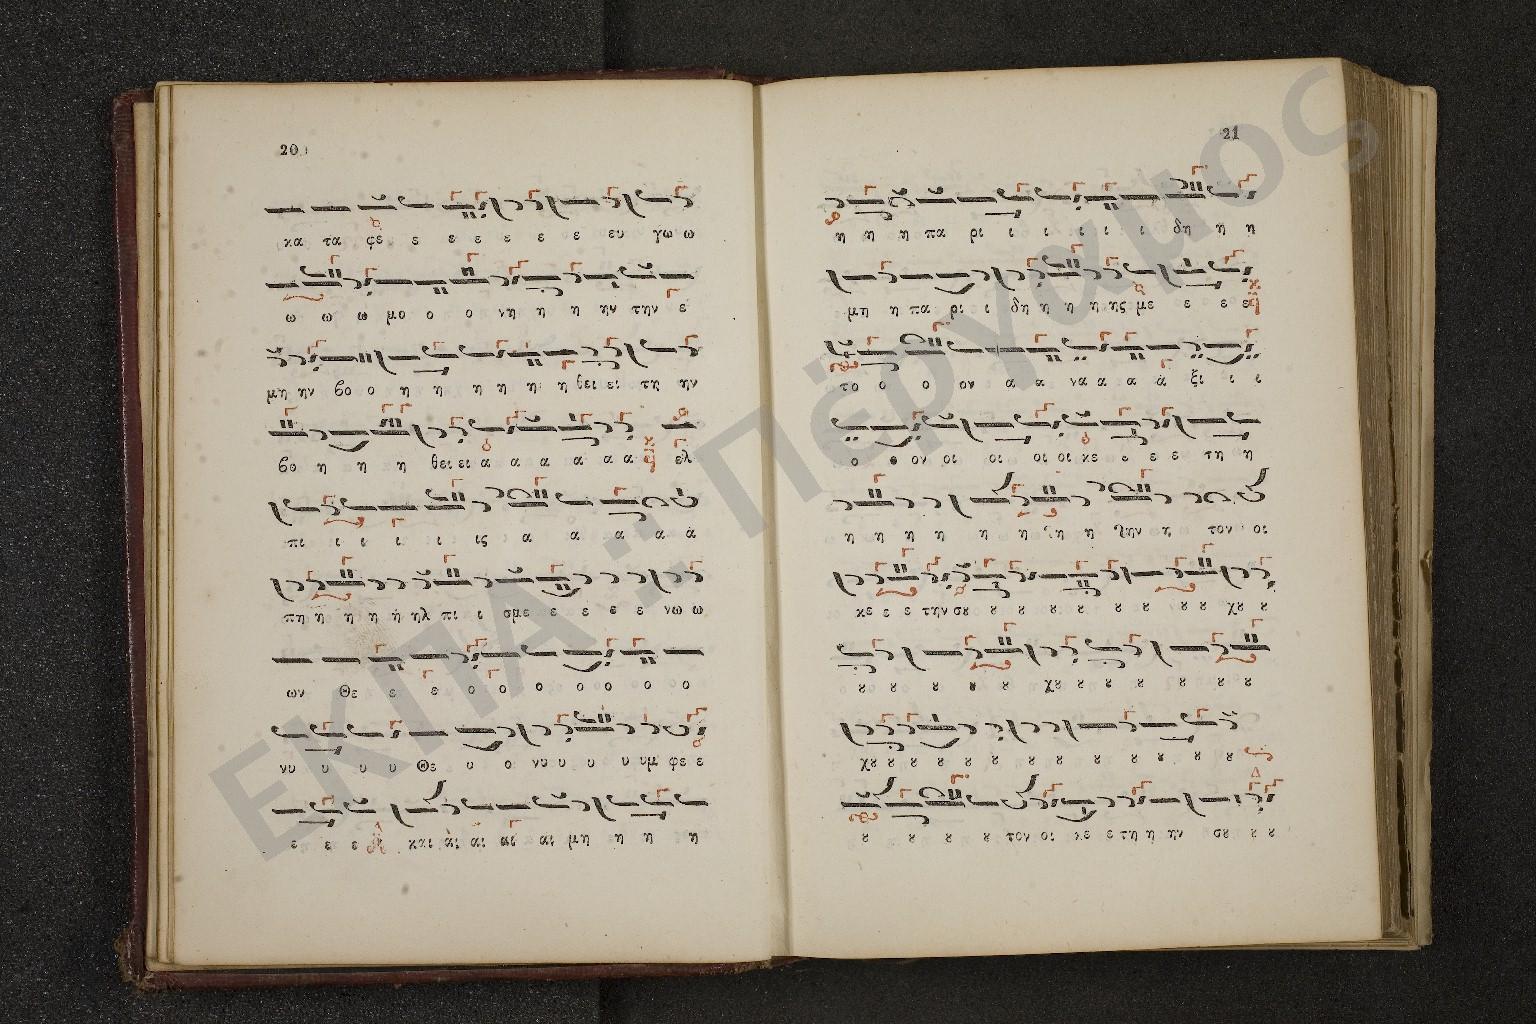 20
κα τα φε ε ε ε ε ε ε ευ γω ω
ω ω ω μο ο ο νη η η ην την ε
μη ην βο ο η η η η η η θει ει τη ην
βο η η η θει ει α α α α α α ελ
πι ι ι ι ι ις α α α α ά
πη η η η ή ηλ πι ι σμε ε ε ε ε νω ω
ων Θε ε ε ο ο ο ο ο ο ο
νυ υ υ υ Θε υ ο νυ υ υ υ υμ φε ε
ε ε ε και αι αι αι αι μη η η η
21
η η η πα ρι ι ι ι ι ι δη η η
μη η πα ρι ι δη η η η ης με ε ε ε
το ο ο ον α α να α α ά ξι ι ι
ο ο ον οι οι οι οι κε ε ε ε τη η
η η η η η η η η ην η τον οι
κε ε ε την σȣ ȣ ȣ ȣ ȣ ȣ ȣ ȣ ȣ χȣ ȣ
ȣ ȣ ȣ ȣ ȣ χȣ ȣ ȣ ȣ ȣ ȣ ȣ
χȣ ȣ ȣ ȣ ȣ ȣ ȣ ȣ ȣ ȣ ȣ ȣ
ȣ ȣ ȣ ȣ τον οι κε ε τη η ην σȣ ȣ ȣ
ΕΚΠΑ :: Πέργαμος